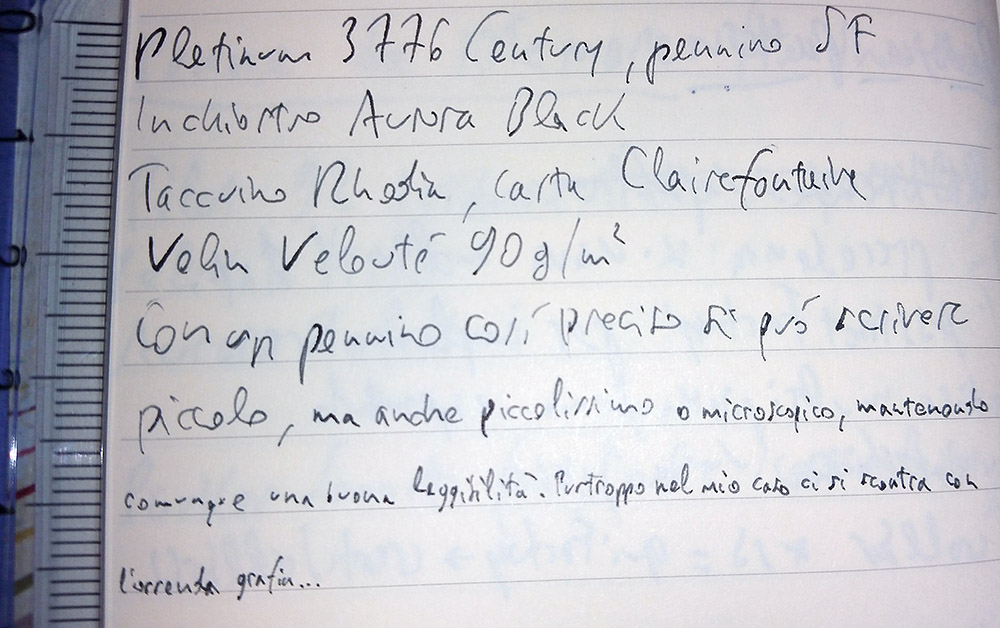 Platinum 3776 Century, pennino SF
Inchiostro Aurora Black
Taccuino Rhodia, carta Clairefontaine
Velin Velouté 90 g/m²
Con un pennino così preciso si può scrivere
piccolo, ma anche piccolissimo o microscopico, mantenendo
comunque una buona leggibilità. Purtroppo nel mio caso ci si scontra con
l'orrenda grafia...
0
1
2
3